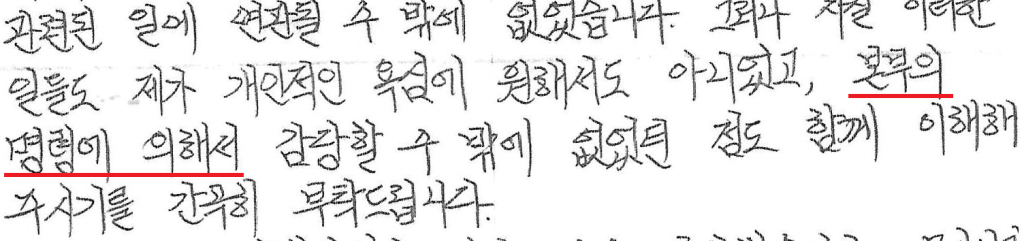 관련된 일에 연관될 수 밖에 없었습니다. 그러나 사실 이러한
일들도 제가 개인적인 욕심에 원해서도 아니었고, 본부의
명령에 의해서 감당할 수 밖에 없었던 점도 함께 이해해
주시기를 간곡히 부탁드립니다.